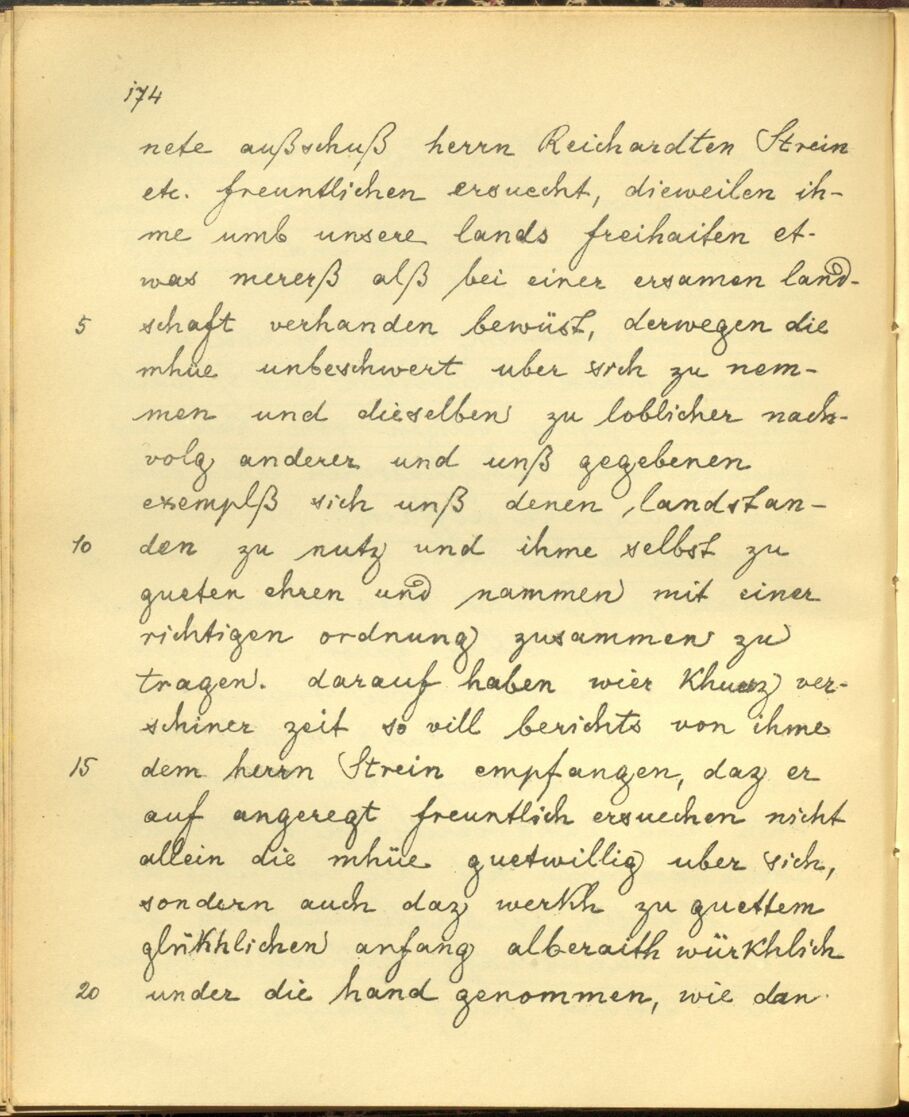 174
nete außschuß herrn Reichardten Strein
etc. freuntlichen ersuecht, dieweilen ih-
me umb unsere lands freihaiten et-
was mererß alß bei einer ersamen land-
5 schaft verhanden bewüst, derwegen die
mhüe unbeschwert uber sich zu nem-
men und dieselben zu loblicher nach-
volg anderer und unß gegebenen
exemplß sich unß denen landstan-
10 den zu nutz und ihme selbst zu
gueten ehren und nammen mit einer
richtigen ordnung zusammen zu
tragen. darauf haben wier khurz ver-
schiner zeit so vill berichts von ihme
15 dem herrn Strein empfangen, daz er
auf angeregt freuntlich ersuechen nicht
allein die mhüe guetwillig uber sich,
sondern auch daz werkh zu guettem
glükhlichen anfang alberaith würkhlich
20 under die hand genommen, wie dan